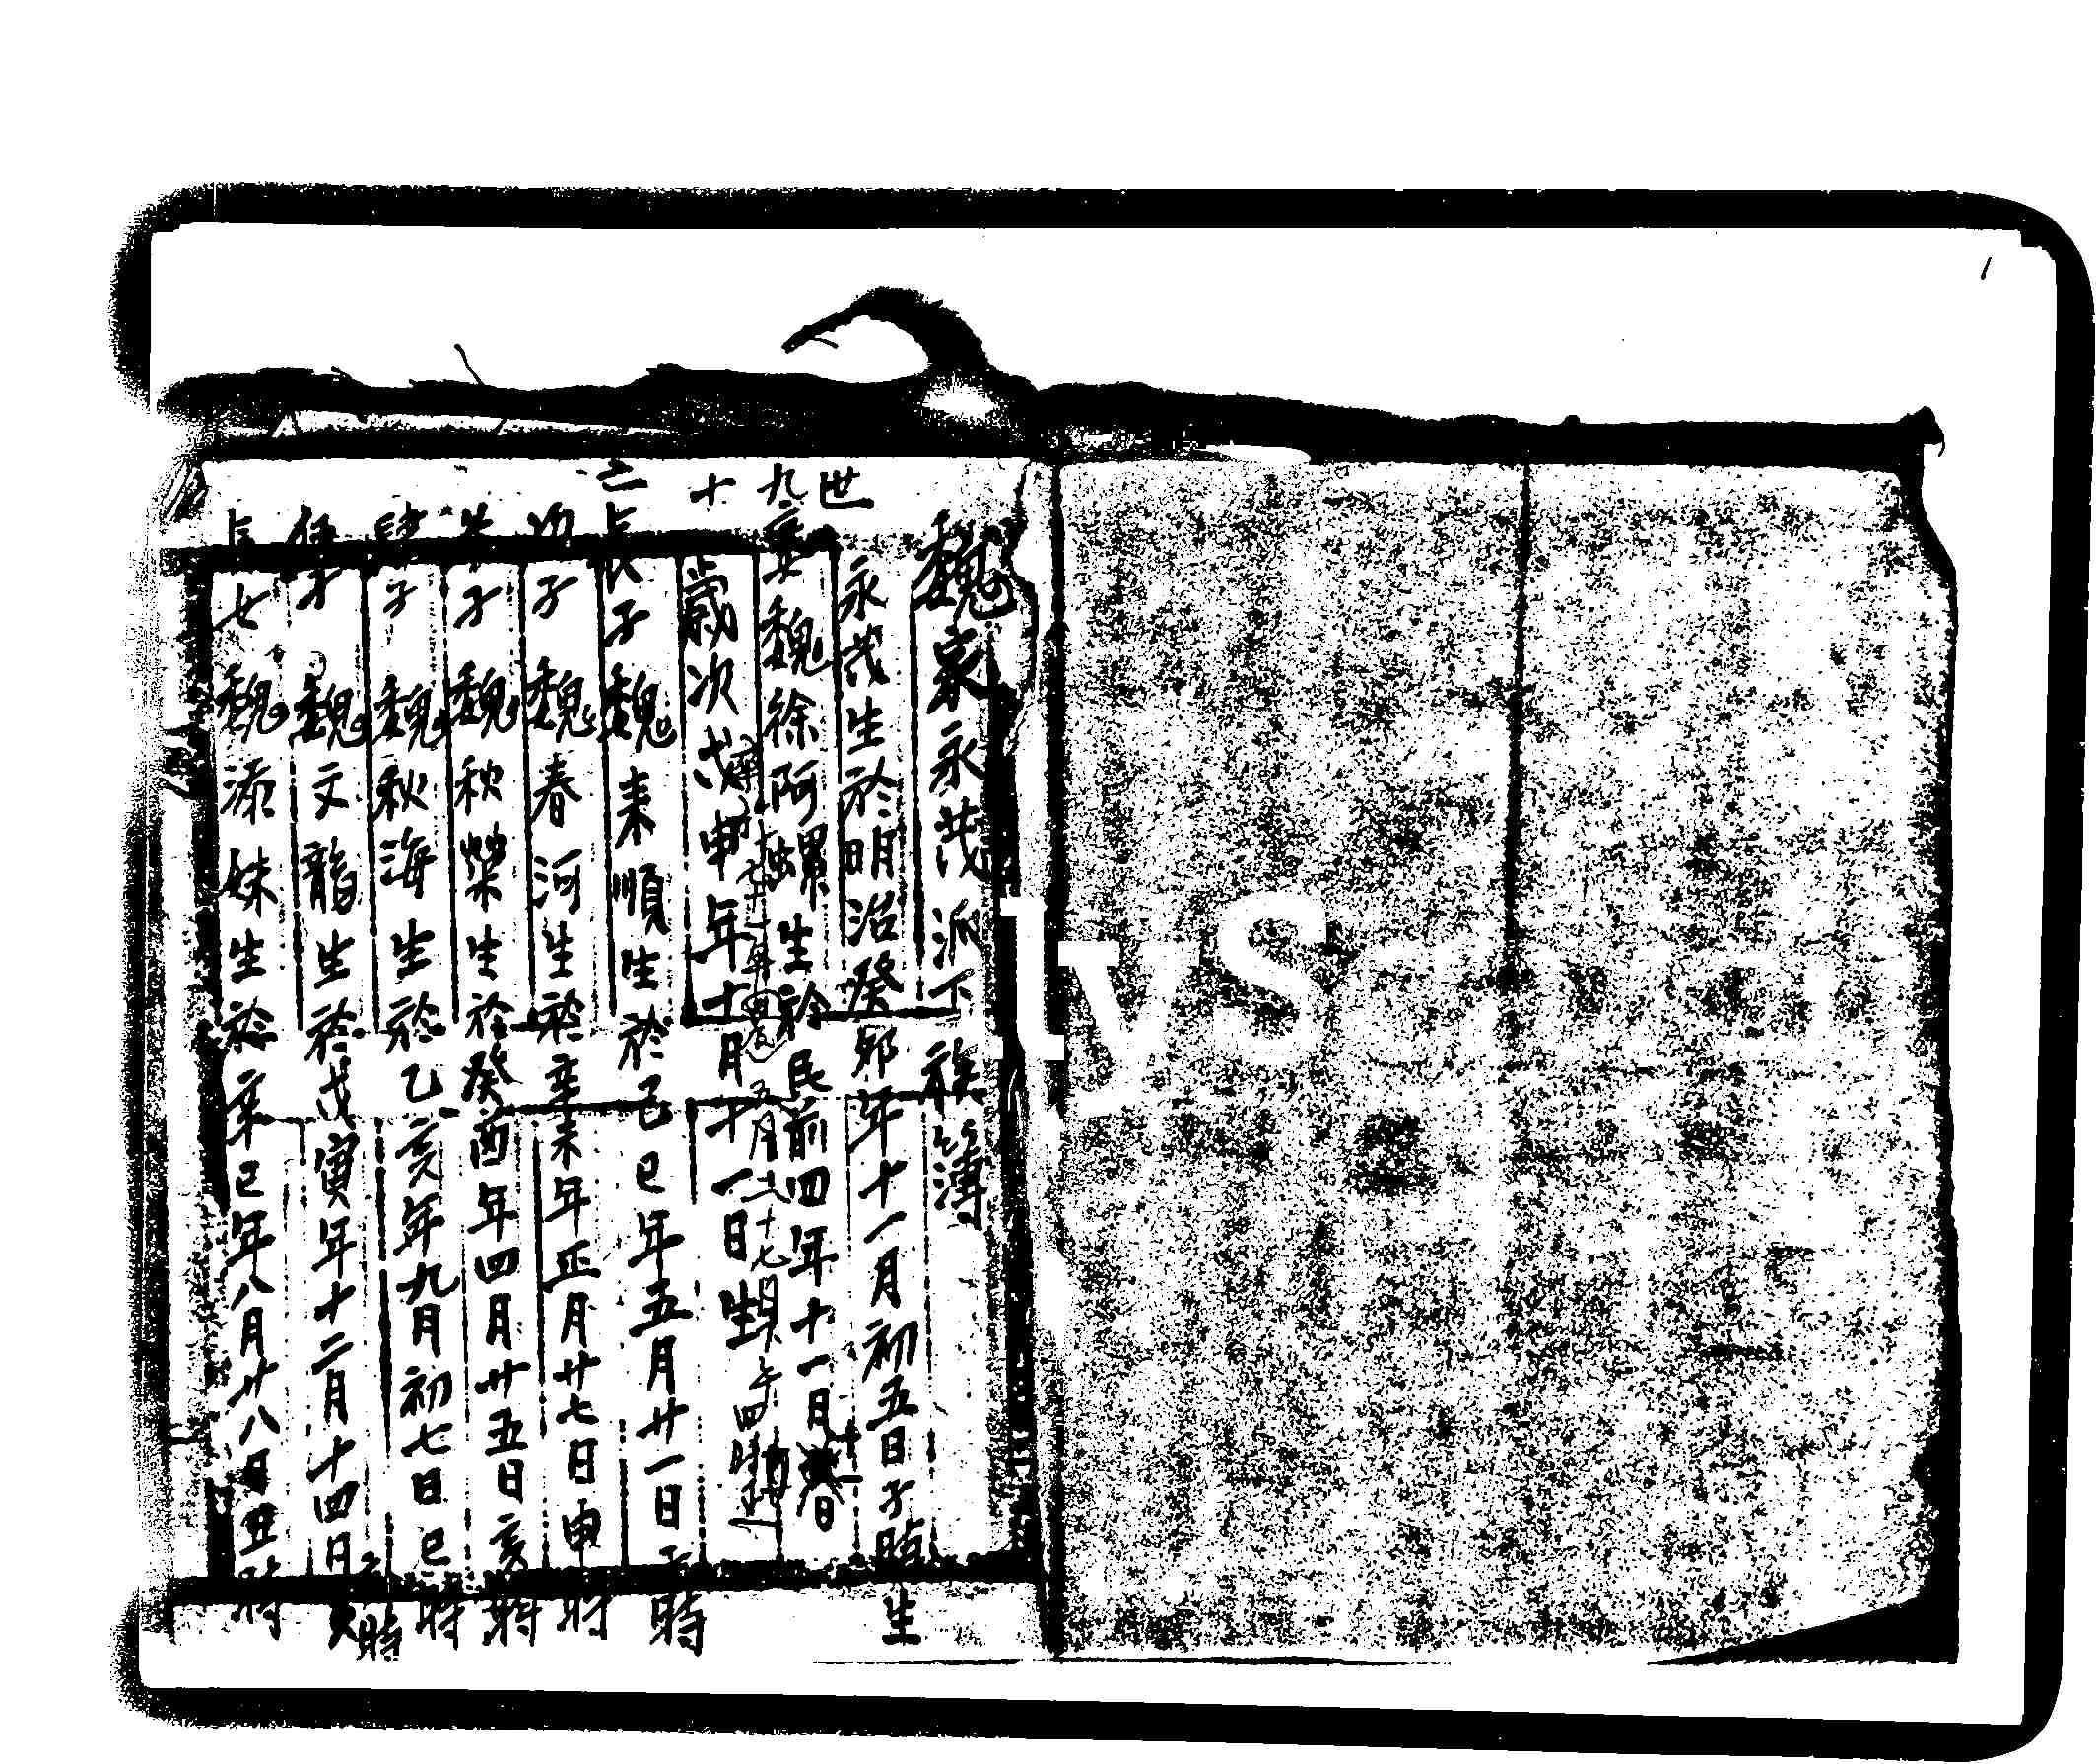 魏家永茂派下族簿
世
永茂生於明治癸卯年十一月初五日子時生
九
妻魏徐阿螺生於民前四年十一月廿一日
十
歲次戊申年十月廿一日生
二長子魏來順生於己巳年五月廿一日子時
次子魏春河生於辛未年正月廿七日申時
叁子魏秋榮生於癸酉年四月廿五日亥時
肆子魏秋海生於乙亥年九月初七日巳時
伍子魏文龍生於戊寅年十二月十四日時
長女魏添妹生於辛巳年八月廿八日丑時
lySearch